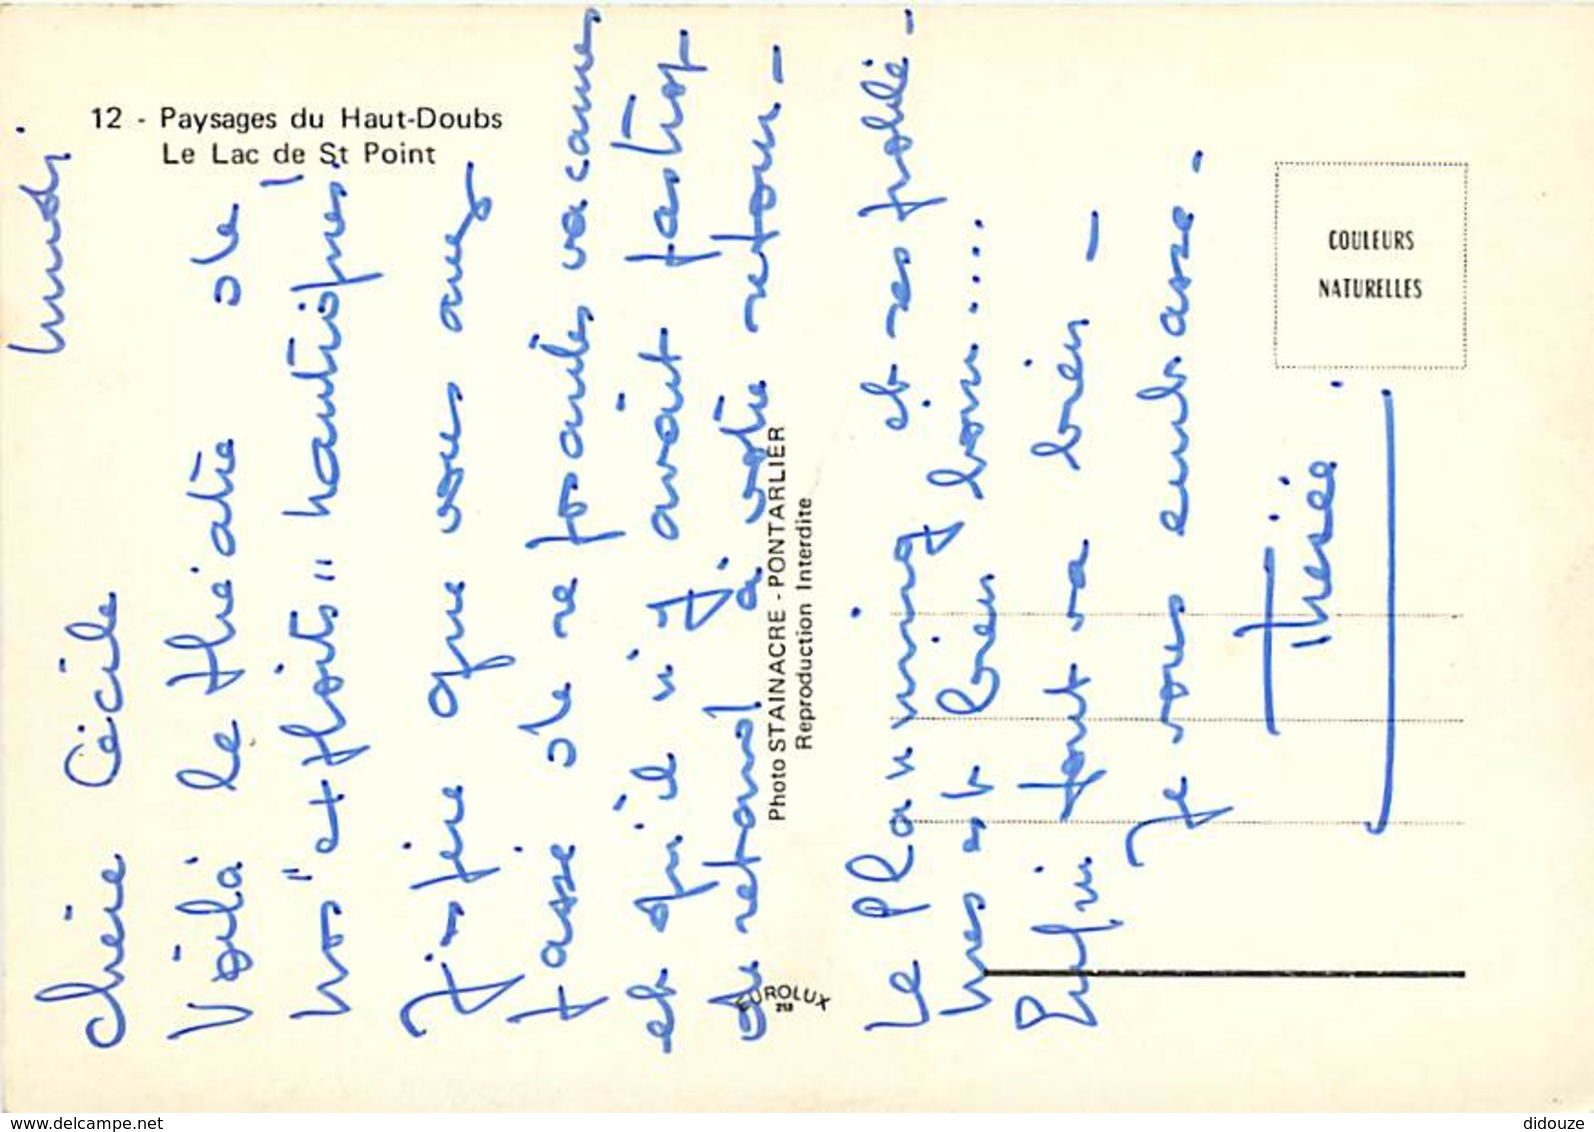 12 - Paysages du Haut-Doubs
Le Lac de St Point
lundi
Chère Cécile
Voilà le théâtre de
nos "exploits" nautiques!
J'espère que vous avez
passé de reposantes vacances
et qu'il n'y avait pas trop
de retard à votre retour -
Le Planning est respecté -
mes est bien loin....
Enfin tout va bien -
Je vous embrasse -
Thérèse
COULEURS
NATURELLES
Photo STAINACRE - PONTARLIER
Reproduction Interdite
EUROLUX
213
www.delcampe.net
didouze